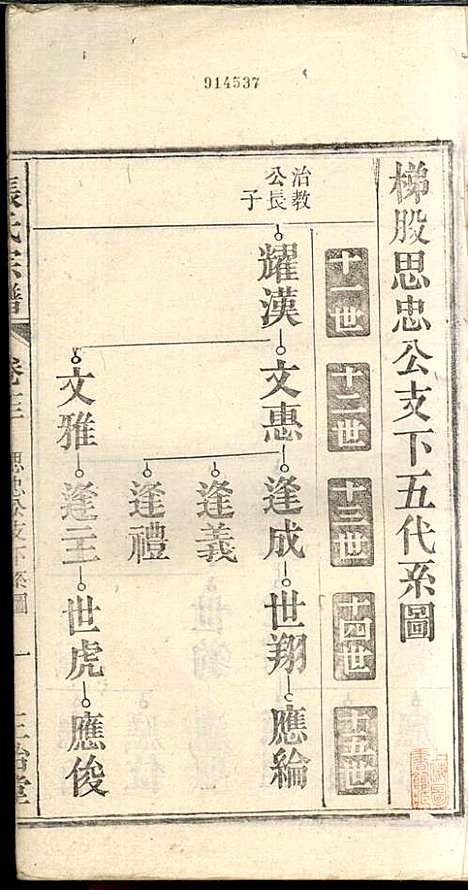 914537
梯股思忠公支下五代系圖
十一世
十二世
十三世
十四世
十五世
治教
公長
子
耀漢
文惠
逢成
世翔
應綸
逢義
逢禮
文雅
逢三
世虎
應俊
張氏宗譜
卷三
思忠公支下系圖
一